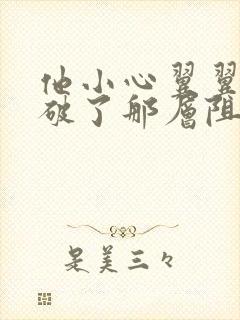 他小心翼翼
破了那层阻
是美三々